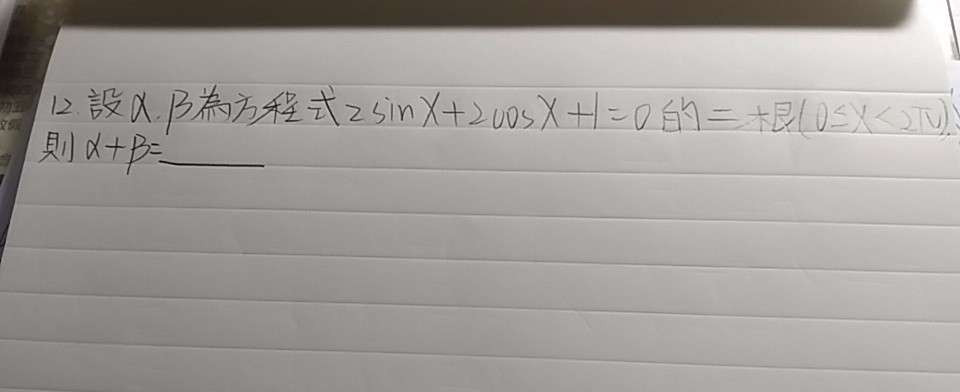 12. 設α、β為方程式2sinX+2cosX+1=0的二根(0≤X<2π),
則α+β=______